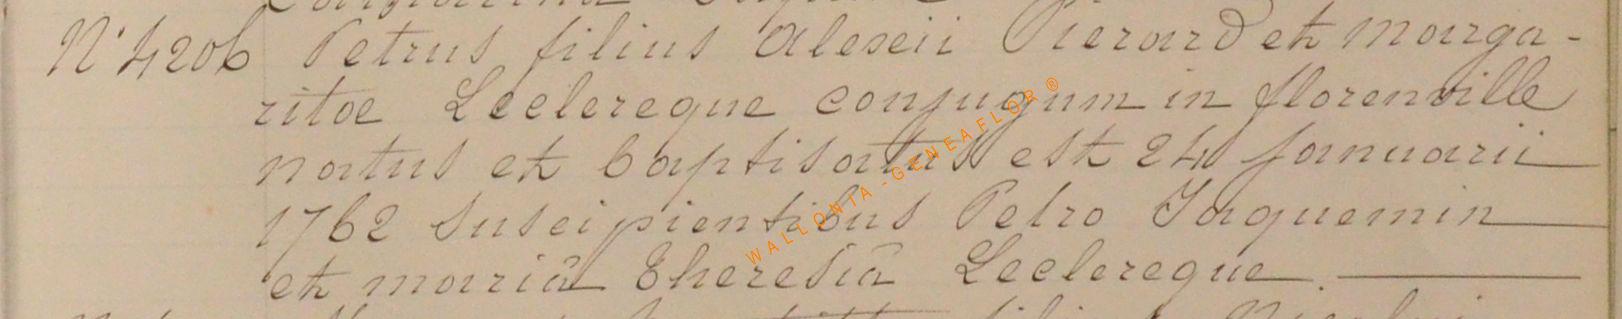 N° 4206 Petrus filius Alexii Pierard et marga-
ritae Leclercque conjugum in florenville
natus et baptisatus est 24 januarii
1762 suscipientibus Petro Jaquemin
et mariâ Theresiâ Leclercque.
WALLONIA - GENEAFLOR ®